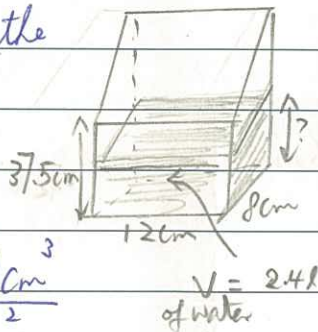 the
?
37.5cm
8cm
12cm
cm³
2
V = 2.4l
of water